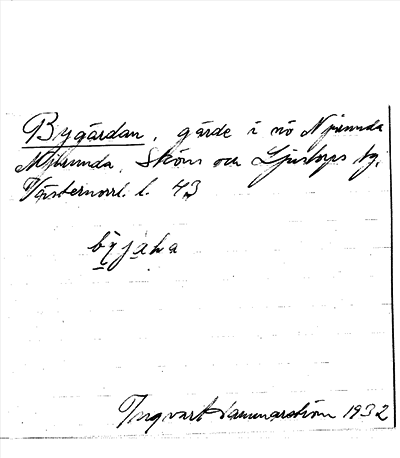 Bygärdan, gärde i nö Njurunda
Sköns och Ljustorps tg,
Västernorrl. l. 43
byjaha
Ingvart Hammarström 1932